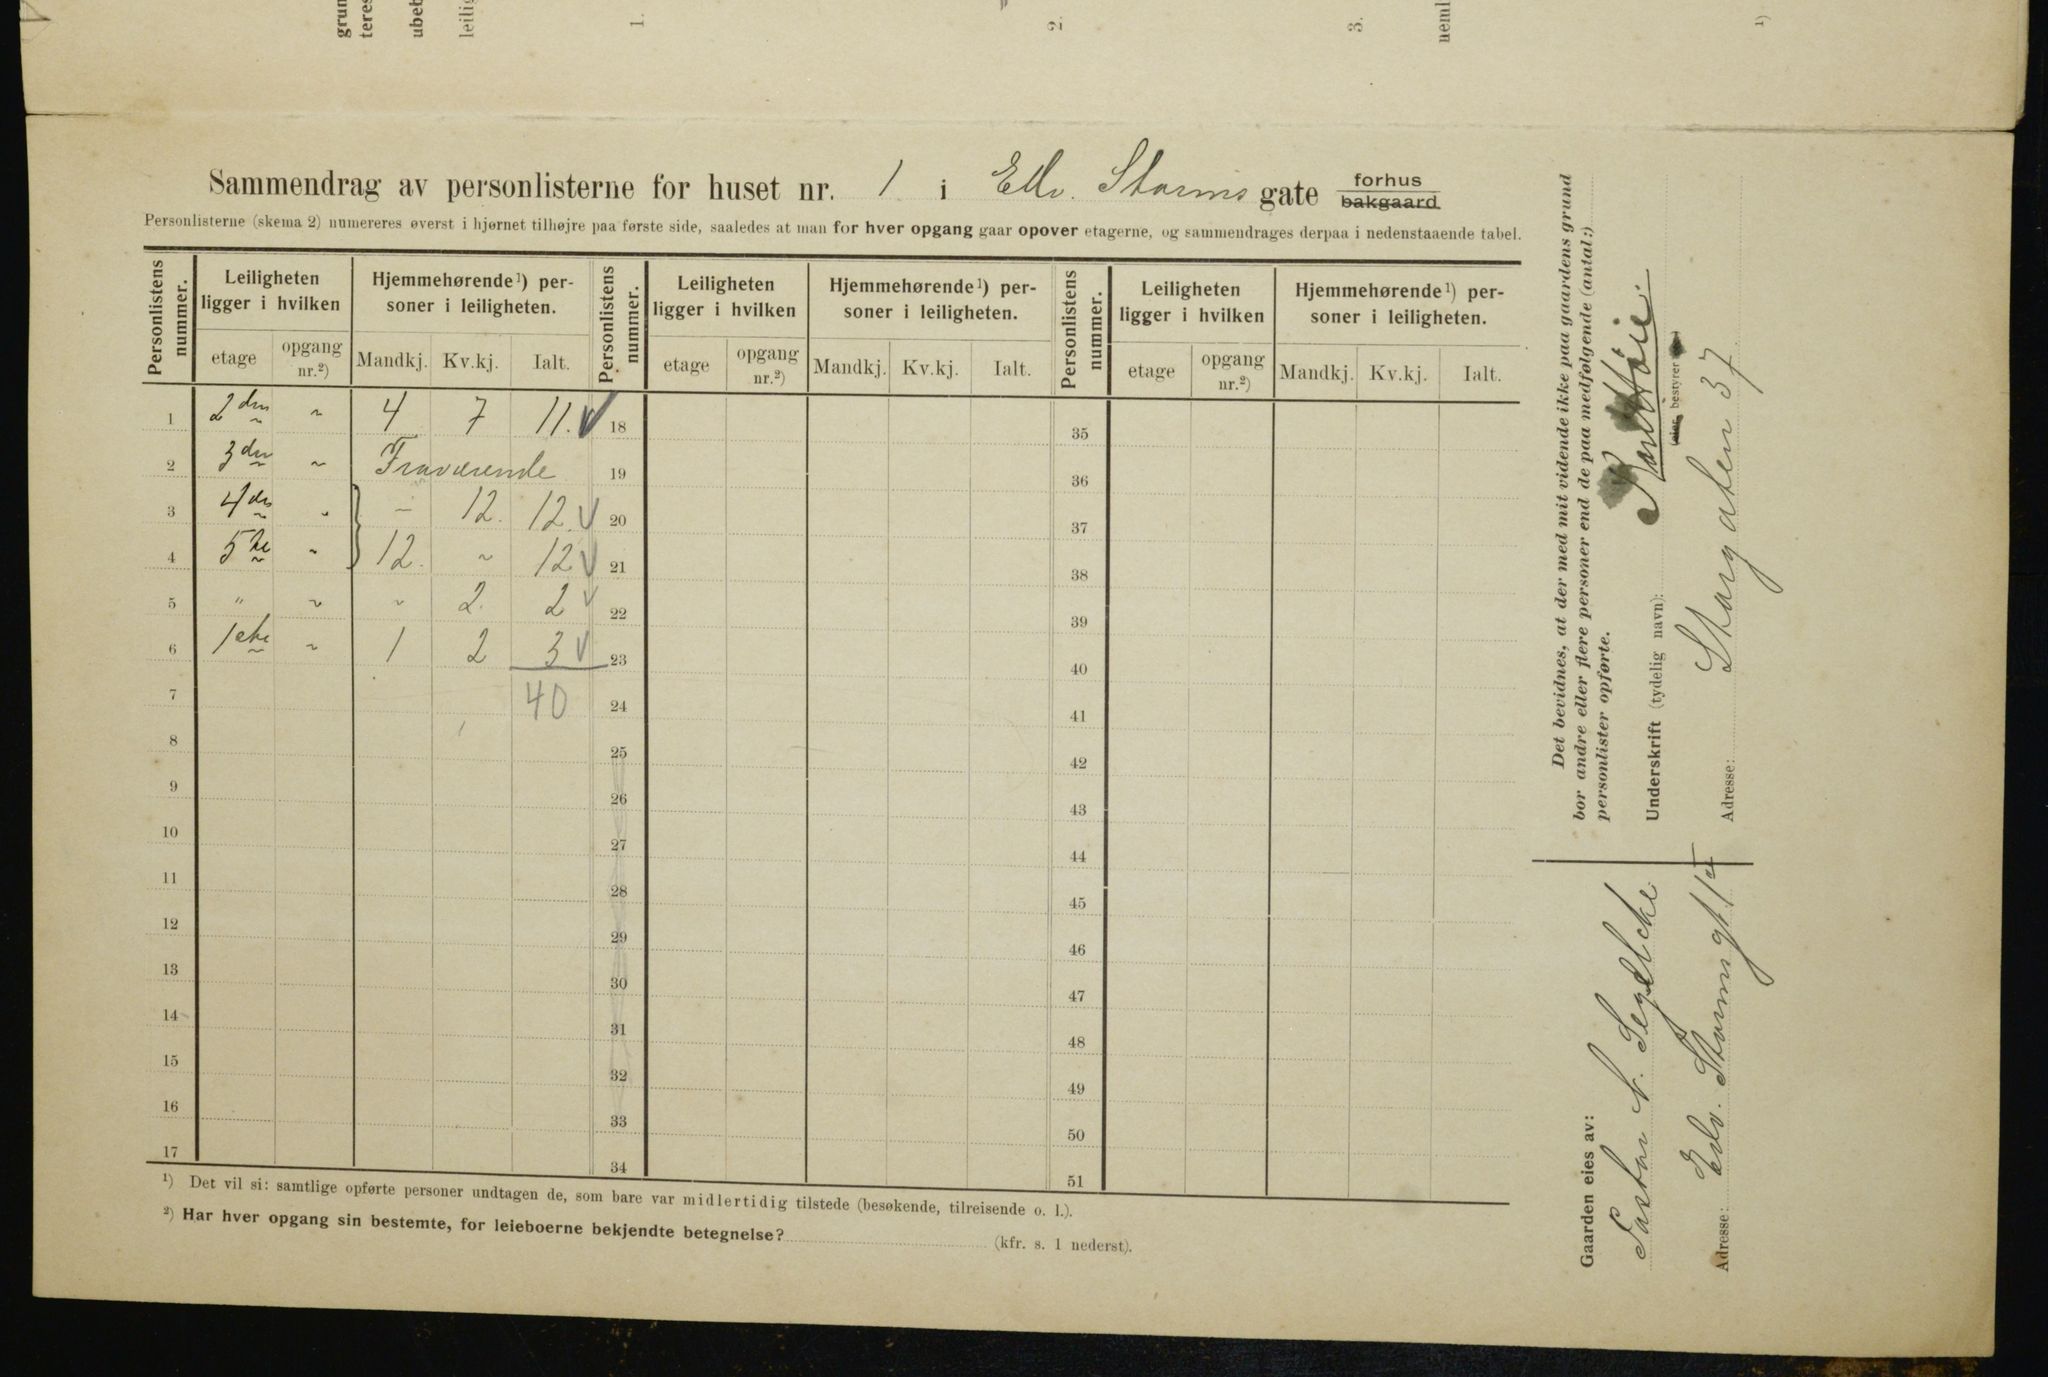 grun
teres
ubeb
leilig
1.
2.
3.
neml
1)
Sammendrag av personlisterne for huset nr. 1 i Edv. Storms gate forhus bakgaard
Personlisterne (skema 2) numereres øverst i hjørnet tilhøjre paa første side, saaledes at man for hver opgang gaar opover etagerne, og sammendrages derpaa i nedenstaaende tabel.
Personlistens nummer. Leiligheten ligger i hvilken Hjemmehørende1) personer i leiligheten. Personlistens nummer. Leiligheten ligger i hvilken Hjemmehørende1) personer i leiligheten. Personlistens nummer. Leiligheten ligger i hvilken Hjemmehørende1) personer i leiligheten.
etage opgang nr.2) Mandkj. Kv.kj. Ialt. etage opgang nr.2) Mandkj. Kv.kj. Ialt. etage opgang nr.2) Mandkj. Kv.kj. Ialt.
1 2den " 4 7 11. 18 35
2 3den " Fraværende 19 36
3 4de " – 12. 12. 20 37
4 5te " 12. " 12 21 38
5 " " " 2. 2 22 39
6 1ste " 1 2 3 23 40
7 40 24 41
8 25 42
9 26 43
10 27 44
11 28 45
12 29 46
13 30 47
14 31 48
15 32 49
16 33 50
17 34 51
1) Det vil si: samtlige opførte personer undtagen de, som bare var midlertidig tilstede (besøkende, tilreisende o. l.).
2) Har hver opgang sin bestemte, for leieboerne bekjendte betegnelse? (kfr. s. 1 nederst).
Det bevidnes, at der med mit vidende ikke paa gaardens grund
bor andre eller flere personer end de paa medfølgende (antal:)
personlister opførte.
Underskrift (tydelig navn): Høie.
(eier, bestyrer
Adresse: Storgaten 37
Gaarden eies av:
Pastor N. Segelcke
Adresse: Edv. Storms gt. 1